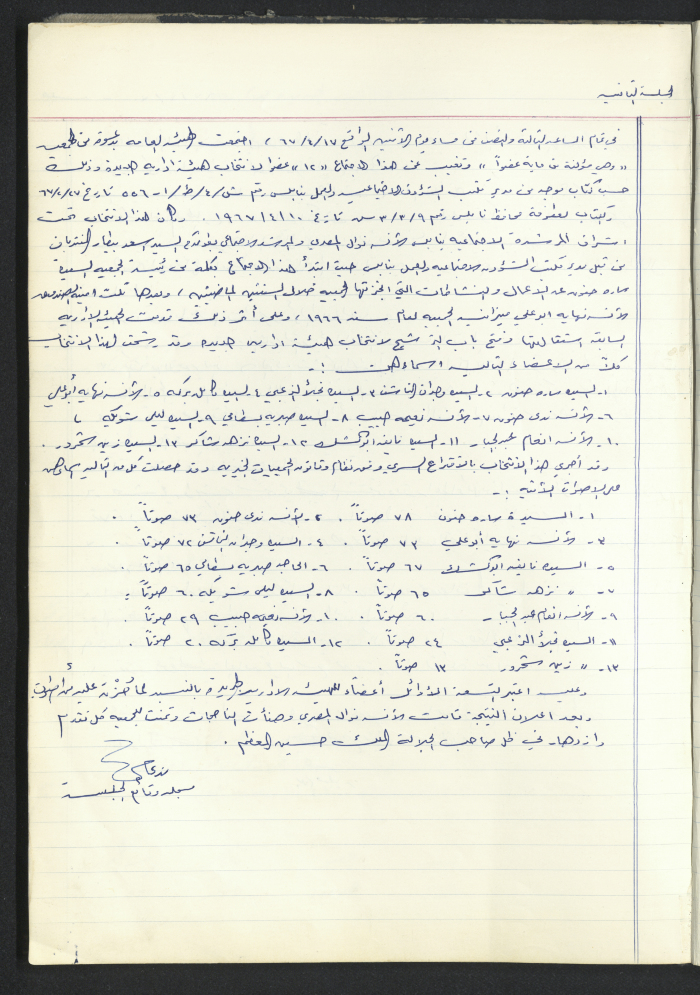 الجلسة الثانية
في تمام الساعة الثالثة والنصف من مساء يوم الاثنين الواقع ٦٧/٤/١٧ ، اجتمعت الهيئة العامة بدعوة من الجمعية
" وهي مؤلفة من ماية عضواً " وتغيب عن هذا الاجتماع "١٢" عضوا لانتخاب هيئة ادارية جديدة وذلك
حسب كتاب موجه من مدير مكتب الشؤون الاجتماعية والعمل بنابلس رقم ش/٤/ط/١ - ٥٥٦ تاريخ ٦٧/٢/٢٧
وكتاب عطوفة محافظ نابلس رقم ٣/٣/٩ تاريخ ١٩٦٧/٤/١٠ . وكان هذا الانتخاب تحت
اشراف المرشدة الاجتماعية بنابلس الآنسة نوال المصري والمرشد الاجتماعي السيد اسعد بيطار المنتدبان
من قبل مدير مكتب الشؤون الاجتماعية والعمل بنابلس حيث ابتدأ هذا الاجتماع بكلمة من رئيسة الجمعية السيدة
ساره حنون عن الاعمال والنشاطات التي انجزتها الجمعية خلال السنتين الماضيتين ، وبعدها تلت امينة الصندوق
الآنسة نهاية ابو علي ميزانية الجمعية لعام سنة ١٩٦٦ ، وعلى أثر ذلك قدمت الهيئة الادارية
السابقة استقالتها وفتح باب الترشيح لانتخاب هيئة ادارية جديدة وقد رشحت لهذا الانتخاب
كلاً من الاعضاء التالية اسماءهن :-
١- السيدة ساره حنون ٢- السيدة وجدان الناشف ٣- السيدة نجلا الزعبي ٤- السيدة كاملة بركه ٥- الآنسة نهاية أبو علي
٦- الآنسة ندى حنون ٧- الآنسة نعيمه حبيب ٨- السيدة صبريه بسطامي ٩- السيدة ليلى شويكه
١٠- الآنسة انعام عبد الجبار ١١- السيدة نايفه ابو كشك ١٢- السيدة نزهه شاكر ١٣- السيدة زين شحرور .
وقد أجري هذا الانتخاب بالاقتراع السري وفق نظام وقانون الجمعيات الخيرية وقد حصلت كل من التالية اسماؤهن
على الاصوات الآتية :-
١- السيدة ساره حنون ٧٨ صوتاً . ٢- الآنسة ندى حنون ٧٣ صوتاً .
٣- الآنسة نهاية أبو علي ٧٣ صوتاً . ٤- السيدة وجدان الناشف ٧٢ صوتاً .
٥- السيدة نايفه ابو كشك ٦٧ صوتاً . ٦- الحاجة صبريه بسطامي ٦٥ صوتاً .
٧- " نزهه شاكر ٦٥ صوتاً . ٨- السيدة ليلى شويكه ٦٠ صوتاً .
٩- الآنسة انعام عبد الجبار ٦٠ صوتاً . ١٠- الآنسة نعيمه حبيب ٢٩ صوتاً .
١١- السيدة نجلا الزعبي ٢٤ صوتاً . ١٢- السيدة كاملة بركه ٢٠ صوتاً .
١٣- " زين شحرور ١٣ صوتاً .
وعليه اعتبر التسعة الأوائل أعضاء للهيئة الادارية الجديدة بالنسبة لما حُزْنَه عليه من أصوات
وبعد اعلان النتيجة قامت الآنسة نوال المصري وهنأت الناجحات وتمنت للجمعية كل تقدم
وازدهار في ظل صاحب الجلالة الملك حسين المعظم .
مسجلة وقائع الجلسة